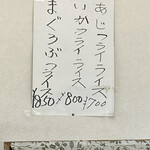 あじフライライス ¥700
いかフライライス ¥800
まぐろぶつライス ¥850